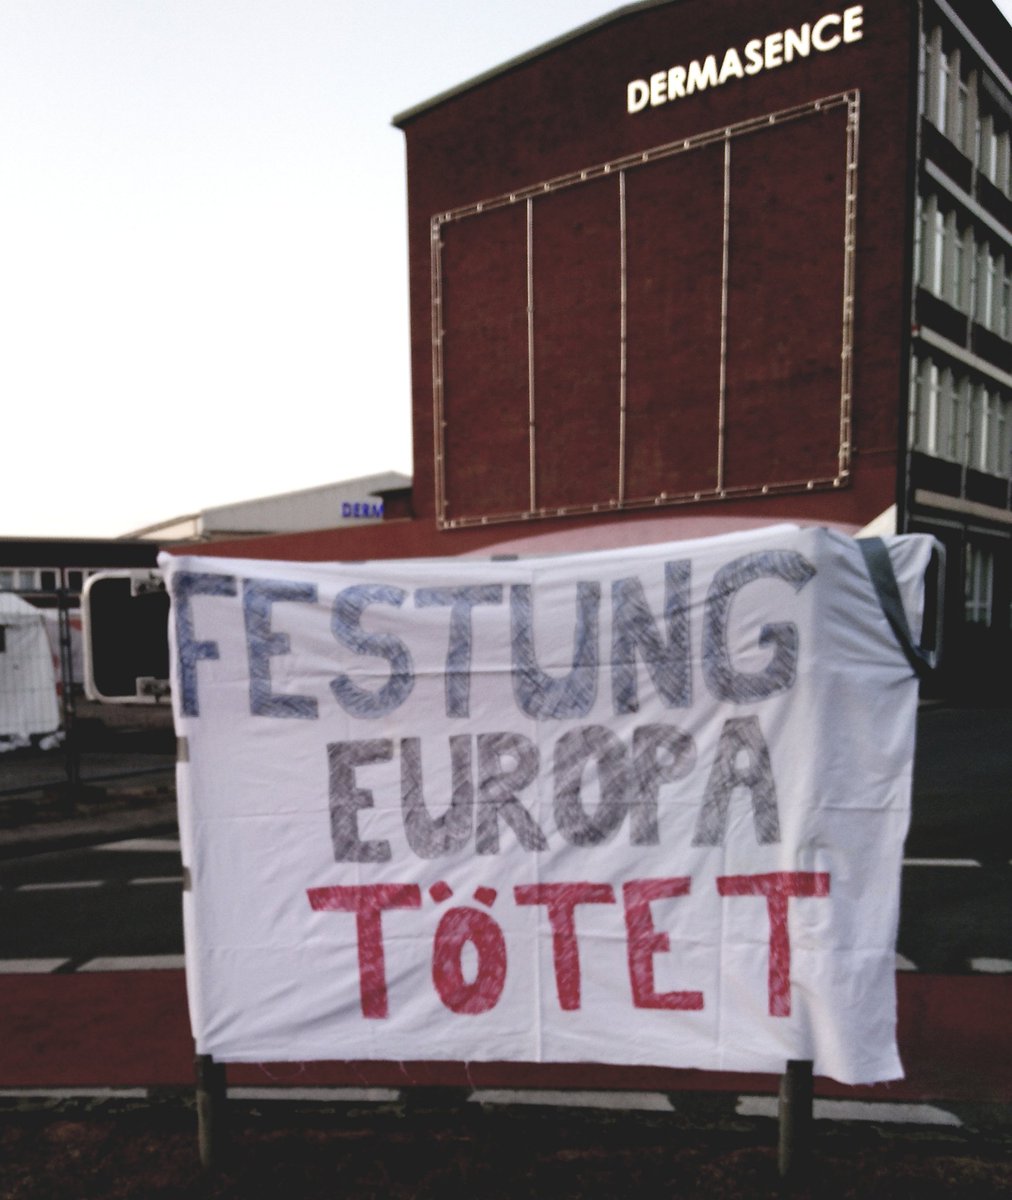 DERMASENCE
DERM
FESTUNG
EUROPA
TÖTET